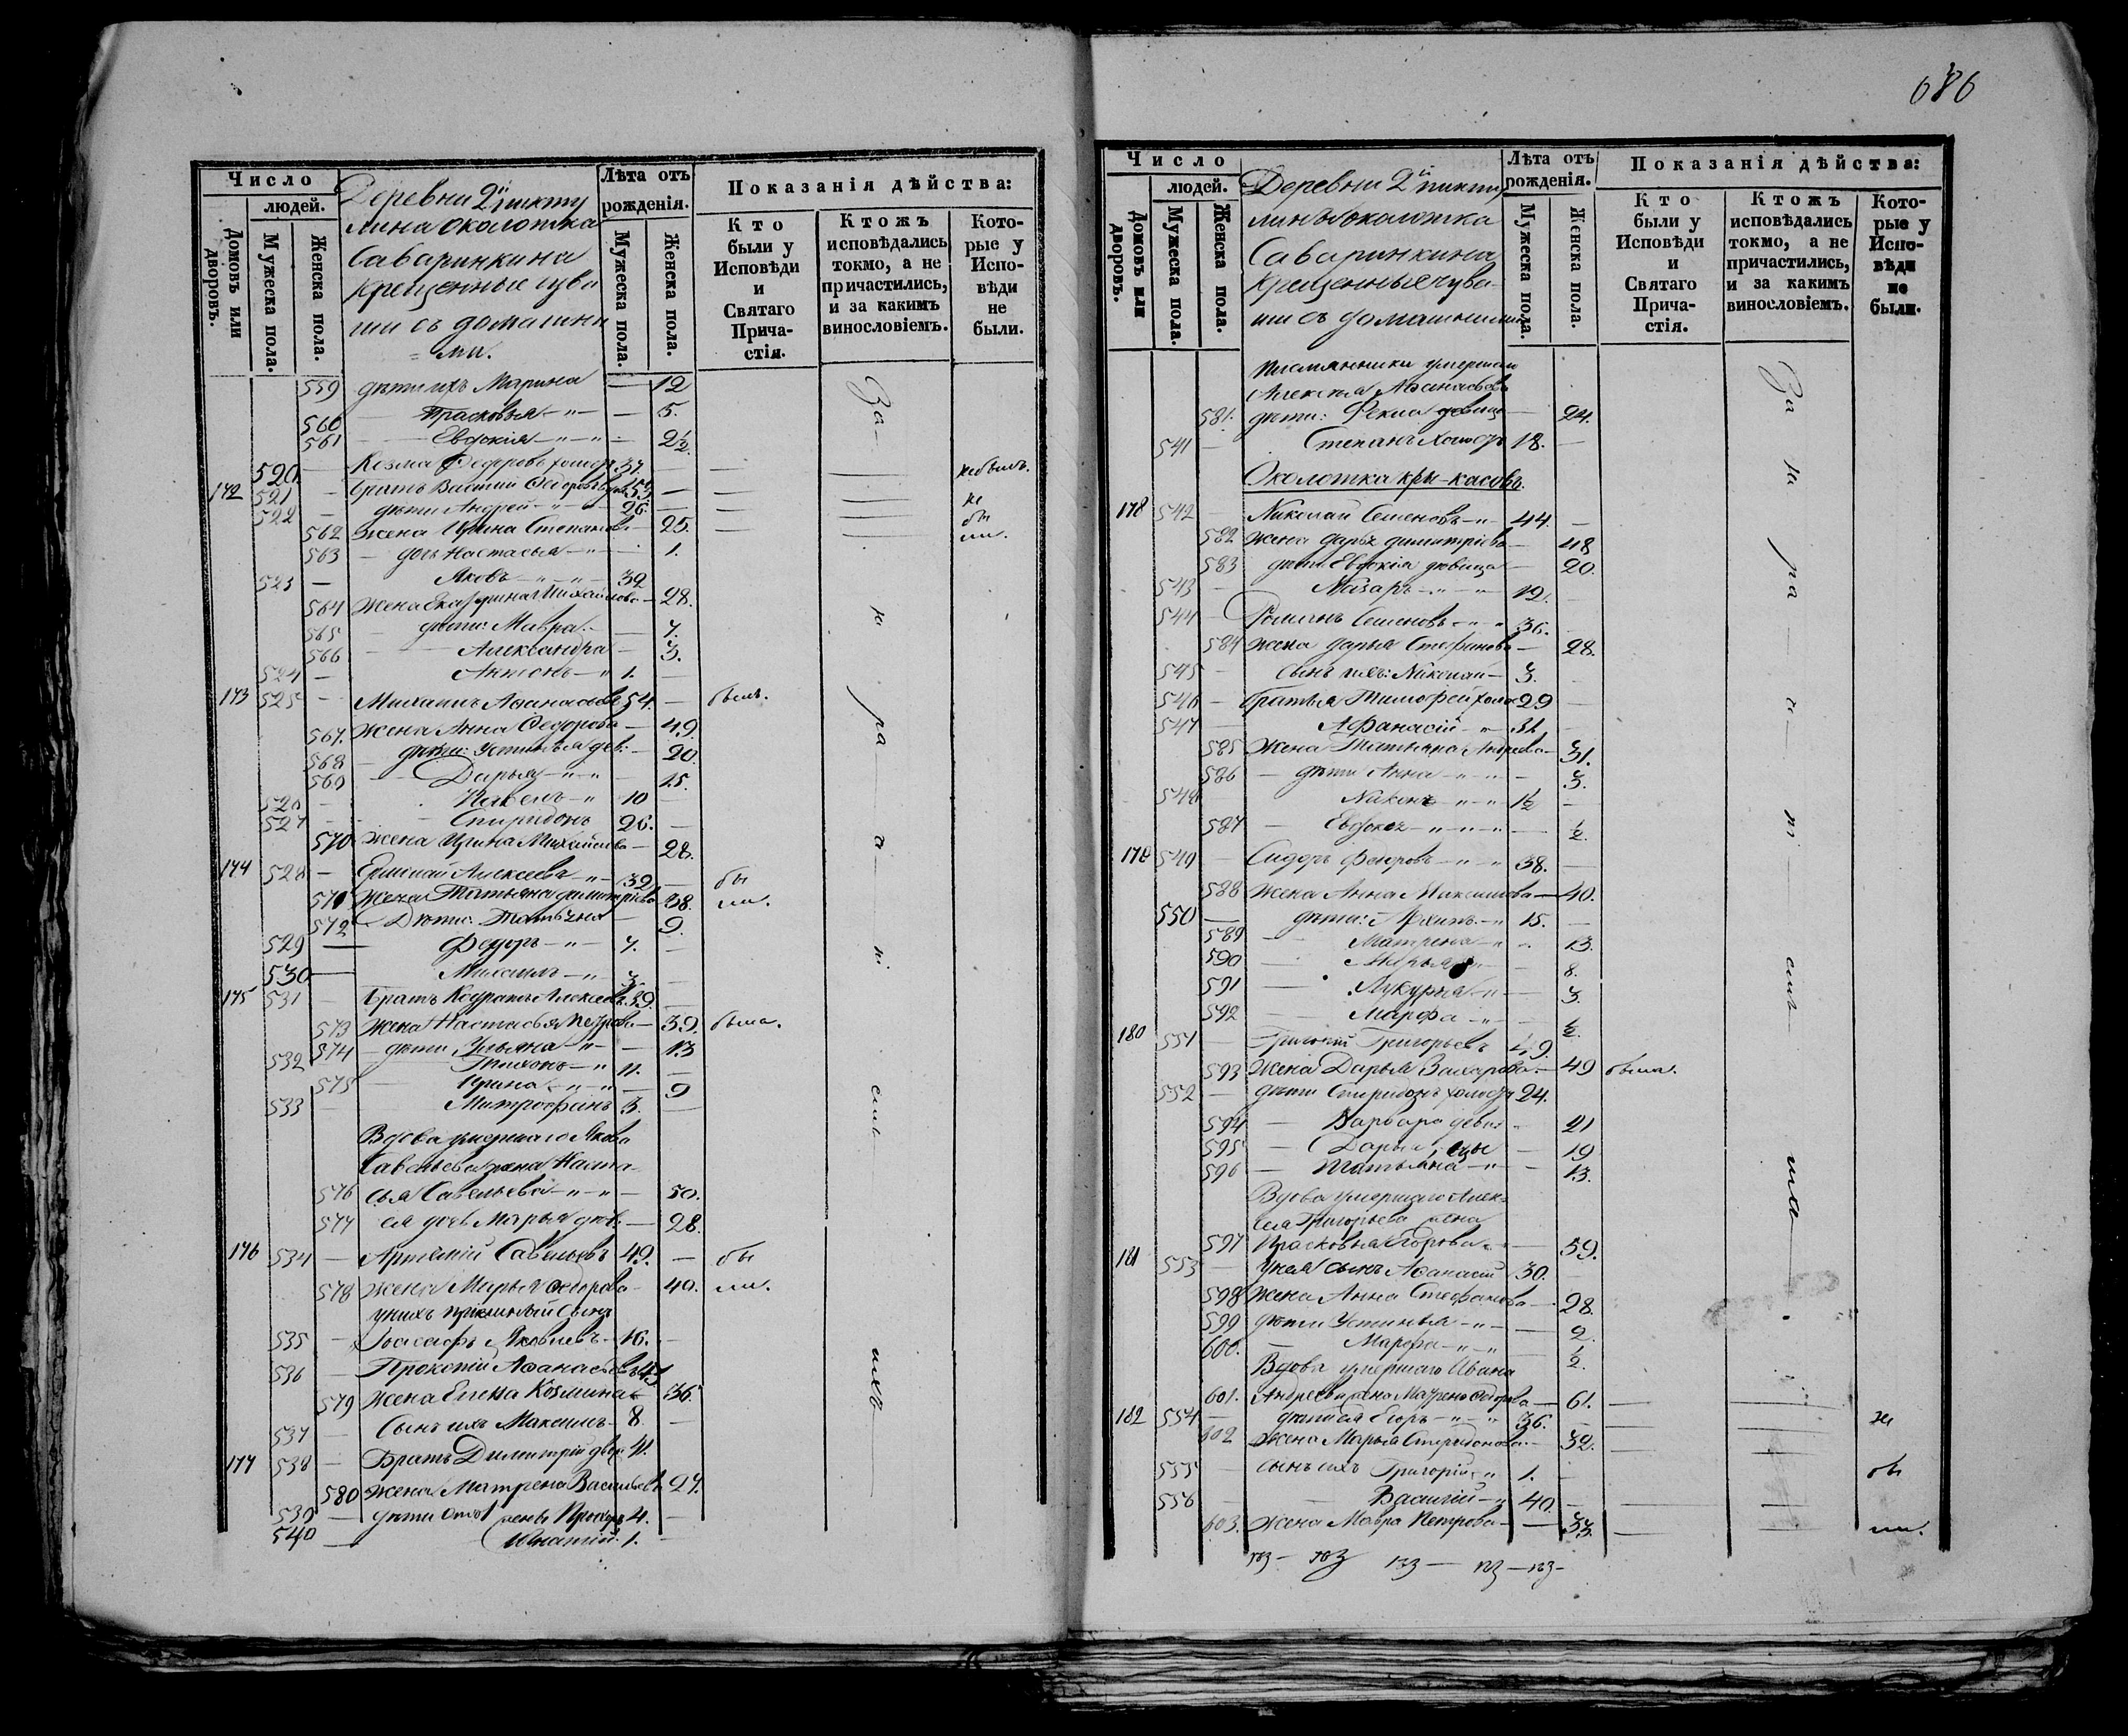 Число
людей.
Домовъ или дворовъ.
Мужеска пола.
Женска пола.
Деревни 2й пикту
лина околотка
Саваринкина
крещенные чува
ши съ домашни
ми.
Лѣта отъ рожденія.
Мужеска пола.
Женска пола.
Показанія дѣйства:
Кто были у Исповѣди и Святаго Прича-стія.
Ктожъ исповѣдались токмо, а не причастились, и за какимъ винословіемъ.
Кото-рые у Испо-вѣди не были.
559 дѣти ихъ Марина — 12
560 Прасковья — 5.
561 Евдокія — 2½
520 Козма Федоровъ холост. 37. небылъ.
172 521 братъ Василий Федоровъ
522 дѣти Андрей 26. не
562 Жена Ирина Степанова 25. бы
563 дочь Настасья 1. ли.
523 Яковъ 32
564 Жена Екатерина Михайлова 28.
565 дѣти: Мавра 7.
566 Александра 3.
524 Антонъ 1.
173 525 Михаилъ Афанасьевъ 54. былъ.
567. Жена Анна Федорова 49.
568 дѣти: Устинья дев. 20.
569 Дарья 15.
526 Павелъ 10
527 Спиридонъ 26.
570 Жена Ирина Михайлова 28.
174 528 Ермолай Алексеевъ 32 бы
571 Жена Татьяна Димитріева 38. ли.
572 Дѣти: Татьяна 9.
529 Федоръ 7.
530 Максимъ 3.
175 531 братъ Кодратъ Алексеевъ 39.
573 Жена Настасья Петрова 39. была.
574 дѣти Ульяна 13
532 Тихонъ 11.
575 Ирина 9
533 Митрофанъ 3.
Вдова умершаго Якова
Савельева жена Наста-
576 сья Савельева 50.
577 ея дочь Марья дев. 28.
176 534 Артемій Савельевъ 49. бы
578 Жена Марья Федорова 40. ли.
у нихъ приемный сынъ
535 Іосафъ Яковлевъ 16.
536 Прокопій Афанасьевъ 43
579 Жена Елена Козмина 36.
537 Сынъ ихъ Максимъ 8.
177 538 Братъ Димитрій
580 Жена Матрена Васильева 27.
539 дѣти 4.
540 Игнатій 1.
За не ра а ні емъ ихъ
686
Число
людей.
Домовъ или дворовъ.
Мужеска пола.
Женска пола.
Деревни 2й пикту
лина околотка
Саваринкина
крещенные чува-
ши съ домашними
Лѣта отъ рожденія.
Мужеска пола.
Женска пола.
Показанія дѣйства:
Кто были у Исповѣди и Святаго Прича-стія.
Ктожъ исповѣдались токмо, а не причастились, и за какимъ винословіемъ.
Кото-рые у Испо-вѣди не были.
племянники умершаго
Алексѣя Афанасьева
581. дѣти: Фекла девица 24.
541 Степанъ холост. 18.
Околотка Кри-касовъ.
178 542 Николай Семеновъ 44.
582 Жена Дарья Димитріева 48
583 дѣти Евдокія девица 20.
543 Назаръ 12.
544 Романъ Семеновъ 36.
584 Жена Дарья Стефанова 28.
545 Сынъ ихъ: Николай 3.
546 братья Тимофей холо 29
547 Афанасій 31.
585 Жена Татьяна Андреева 31.
586 дѣти Анна 3.
548 Никонъ 1½
587 Евдокія ½.
549 Сидоръ Федоровъ 38.
588 Жена Анна Максимова 40.
550 дѣти: Архипъ 15.
589 Матрена 13.
590 Марья 8.
591 Лукерья 3.
592 Марфа ½.
180 551 Григорій Григорьевъ 49.
593 Жена Дарья Захарова 49 была.
552 дѣти Спиридонъ холост 24.
594 Варвара девиц 21
595 Дарья 19
596 Татьяна 13.
Вдова умершаго Алек-
сея Григорьева жена
597 Прасковья Егорова 59.
181 553 у нея сынъ Афанасій 30.
598 Жена Анна Стефанова 28.
599 дѣти Устинья 2.
600. Марфа ½.
Вдова умершаго Ивана
601. Андреева жена Матрена Федорова 61.
182 554 дѣти ея Егоръ 36. не
602 Жена Марья Спиридонова 32.
555 сынъ ихъ Григорій 1. бы
556 Василій 40.
603. Жена Мавра Петрова 33. ли.
За не ра а ні емъ ихъ